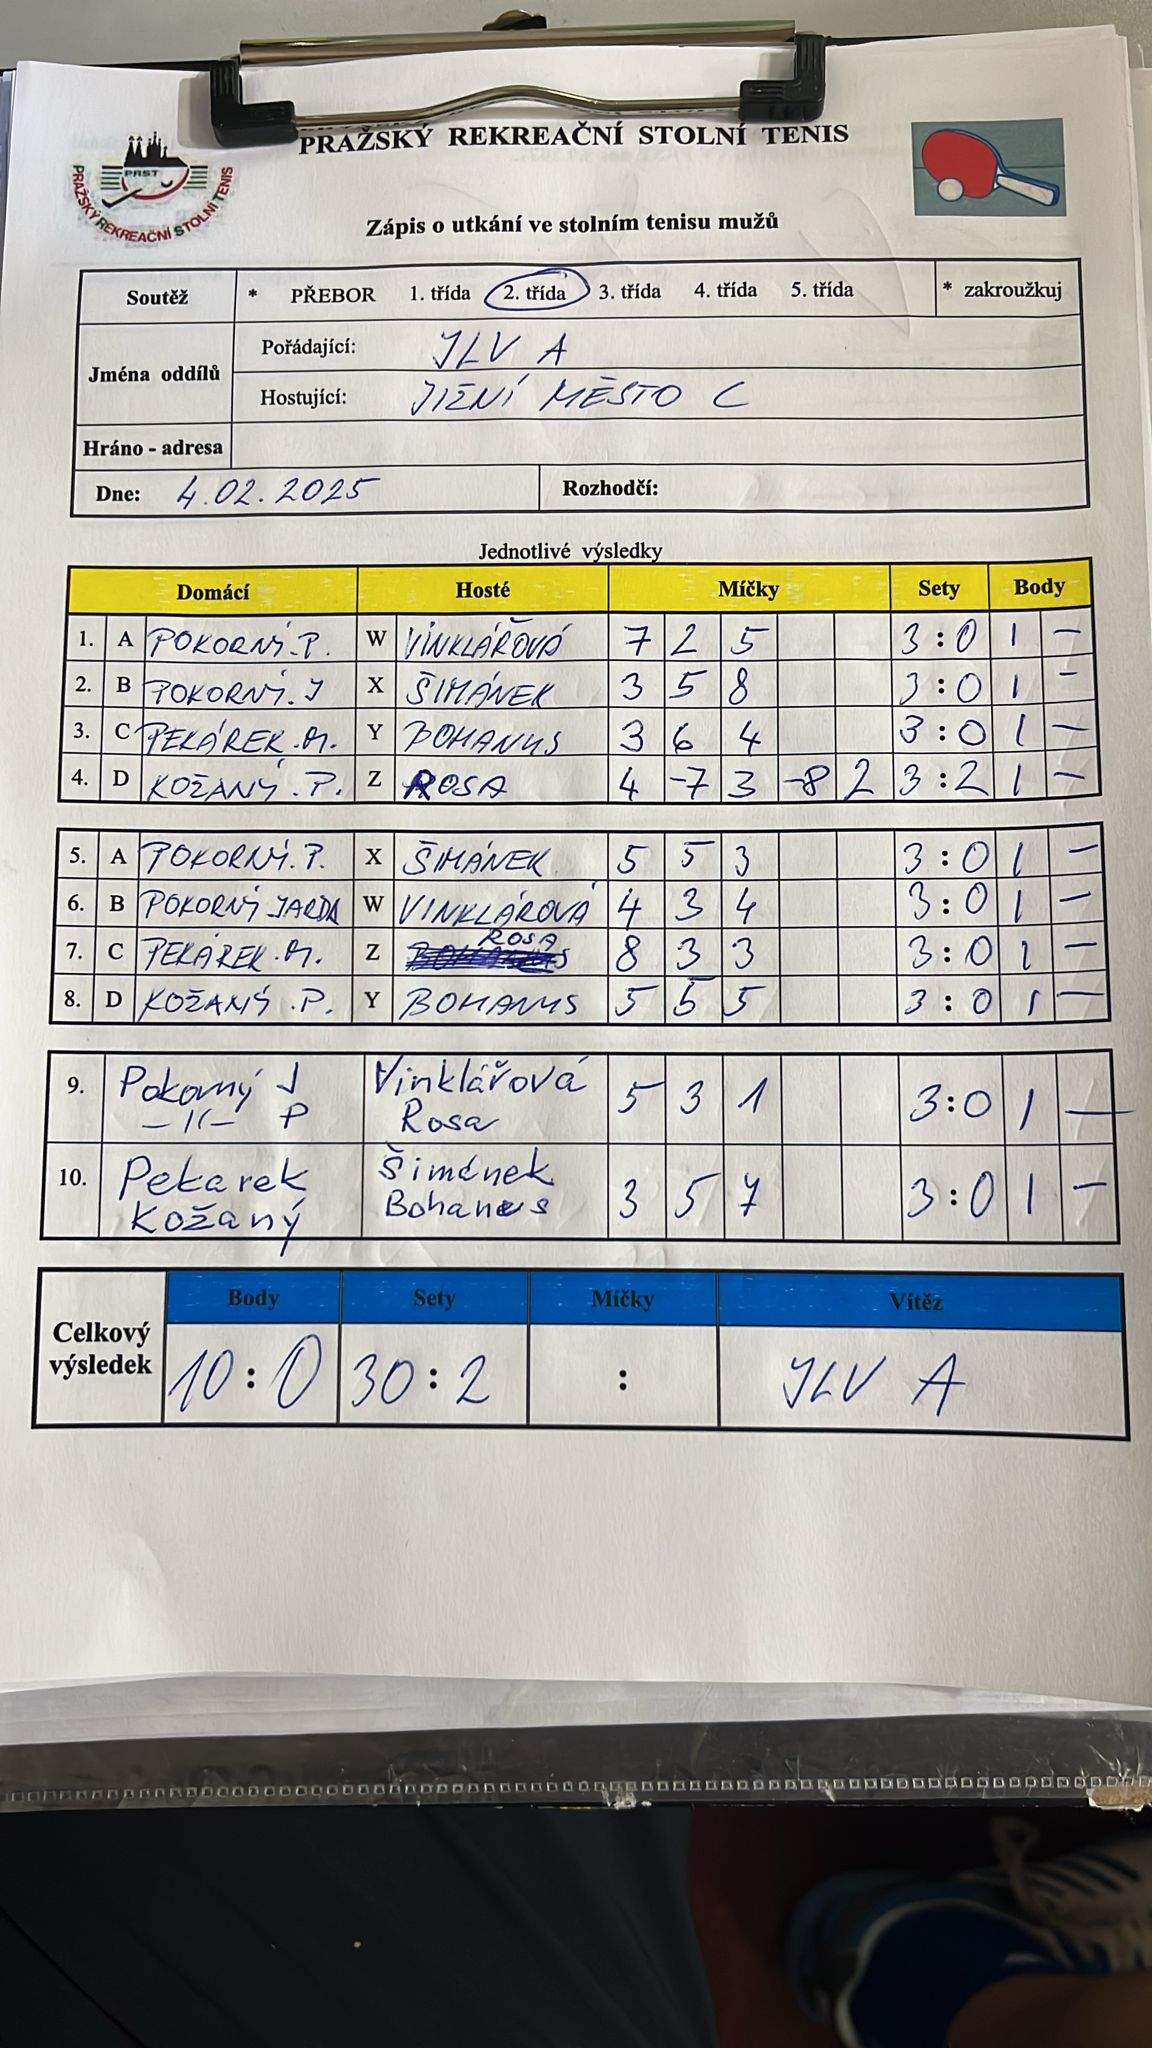 PRAŽSKÝ REKREAČNÍ STOLNÍ TENIS
PRST
PRAŽSKÝ REKREAČNÍ STOLNÍ TENIS
Zápis o utkání ve stolním tenisu mužů
Soutěž * PŘEBOR 1. třída 2. třída 3. třída 4. třída 5. třída * zakroužkuj
Jména oddílů
Pořádající: JLV A
Hostující: JIŽNÍ MĚSTO C
Hráno - adresa
Dne: 4.02.2025 Rozhodčí:
Jednotlivé výsledky
Domácí Hosté Míčky Sety Body
1. A POKORNÝ.P. W VINKLÁŘOVÁ 7 2 5 3:0 1 -
2. B POKORNÝ.J X ŠIMÁNEK 3 5 8 3:0 1 -
3. C PEKÁREK.M. Y BOHANUS 3 6 4 3:0 1 -
4. D KOŽANÝ.P. Z ROSA 4 -7 3 -8 2 3:2 1 -
5. A POKORNÝ.P. X ŠIMÁNEK 5 5 3 3:0 1 -
6. B POKORNÝ JARDA W VINKLÁROVÁ 4 3 4 3:0 1 -
7. C PEKÁREK.M. Z ROSA 8 3 3 3:0 1 -
8. D KOŽANÝ.P. Y BOHANUS 5 5 5 3:0 1 -
9. Pokorný J Vinklářová 5 3 1 3:0 1 -
-||- P Rosa
10. Pekarek Šimánek 3 5 7 3:0 1 -
Kožaný Bohanus
Celkový výsledek
Body Sety Míčky Vítěz
10:0 30:2 : JLV A